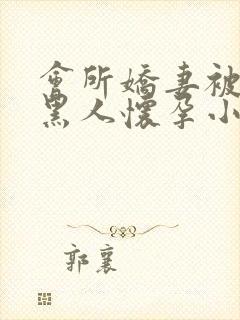 會所嬌妻被
黑人懷孕小
郭襄